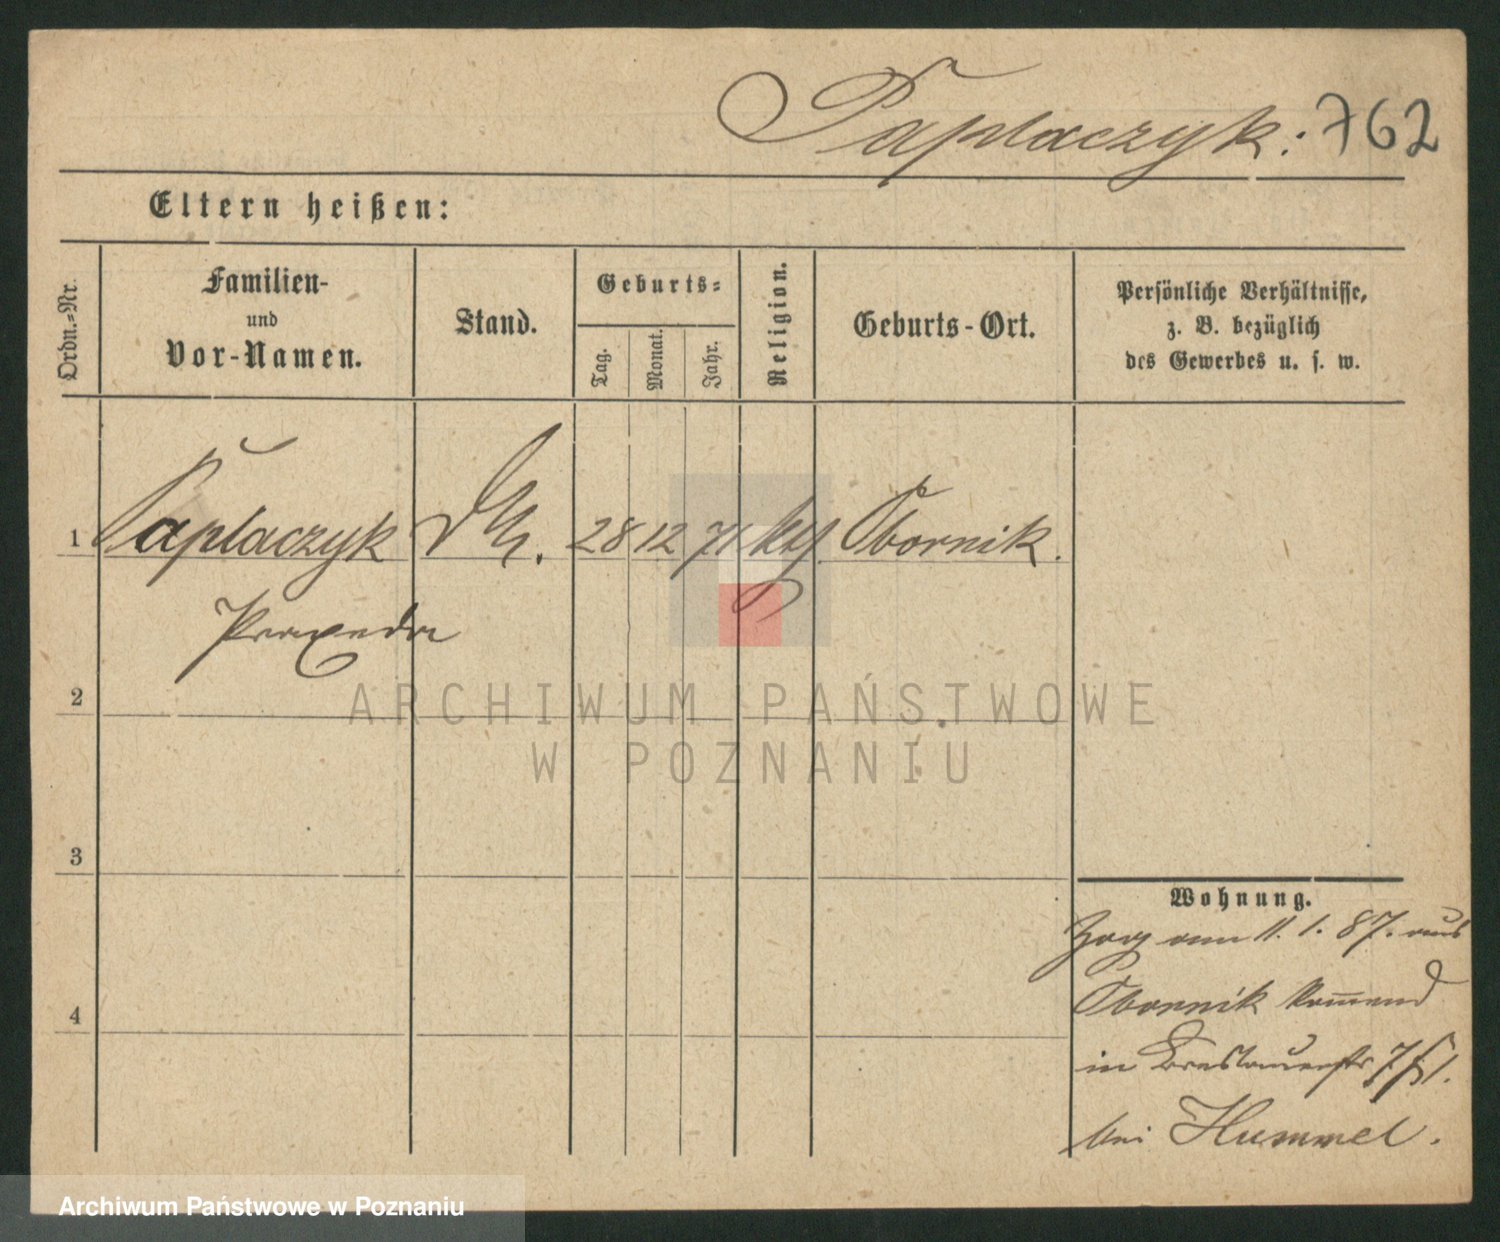 Paplaczyk. 762
Eltern heißen:
Ordn.-Nr.
Familien-
und
Vor-Namen.
Stand.
Geburts-
Tag.
Monat.
Jahr.
Religion.
Geburts-Ort.
Persönliche Verhältnisse,
z. B. bezüglich
des Gewerbes u. s. w.
1 Paplaczyk 28 12 71 Obornik.
Praxeda
2
ARCHIWUM PAŃSTWOWE
W POZNANIU
3
Wohnung.
Zog am 11. 1. 87. aus
Obornik kommend
4
in Breslauerstr
bei Hummel.
Archiwum Państwowe w Poznaniu